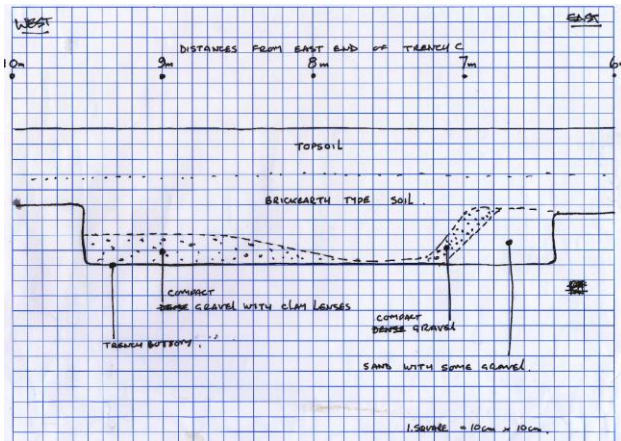 WEST
EAST
DISTANCES FROM EAST END OF TRENCH C
10m 9m 8m 7m 6m
TOPSOIL
BRICKEARTH TYPE SOIL.
COMPACT
DENSE GRAVEL WITH CLAY LENSES
COMPACT
DENSE GRAVEL
TRENCH BOTTOM.
SAND WITH SOME GRAVEL.
1. SQUARE = 10cm x 10cm.